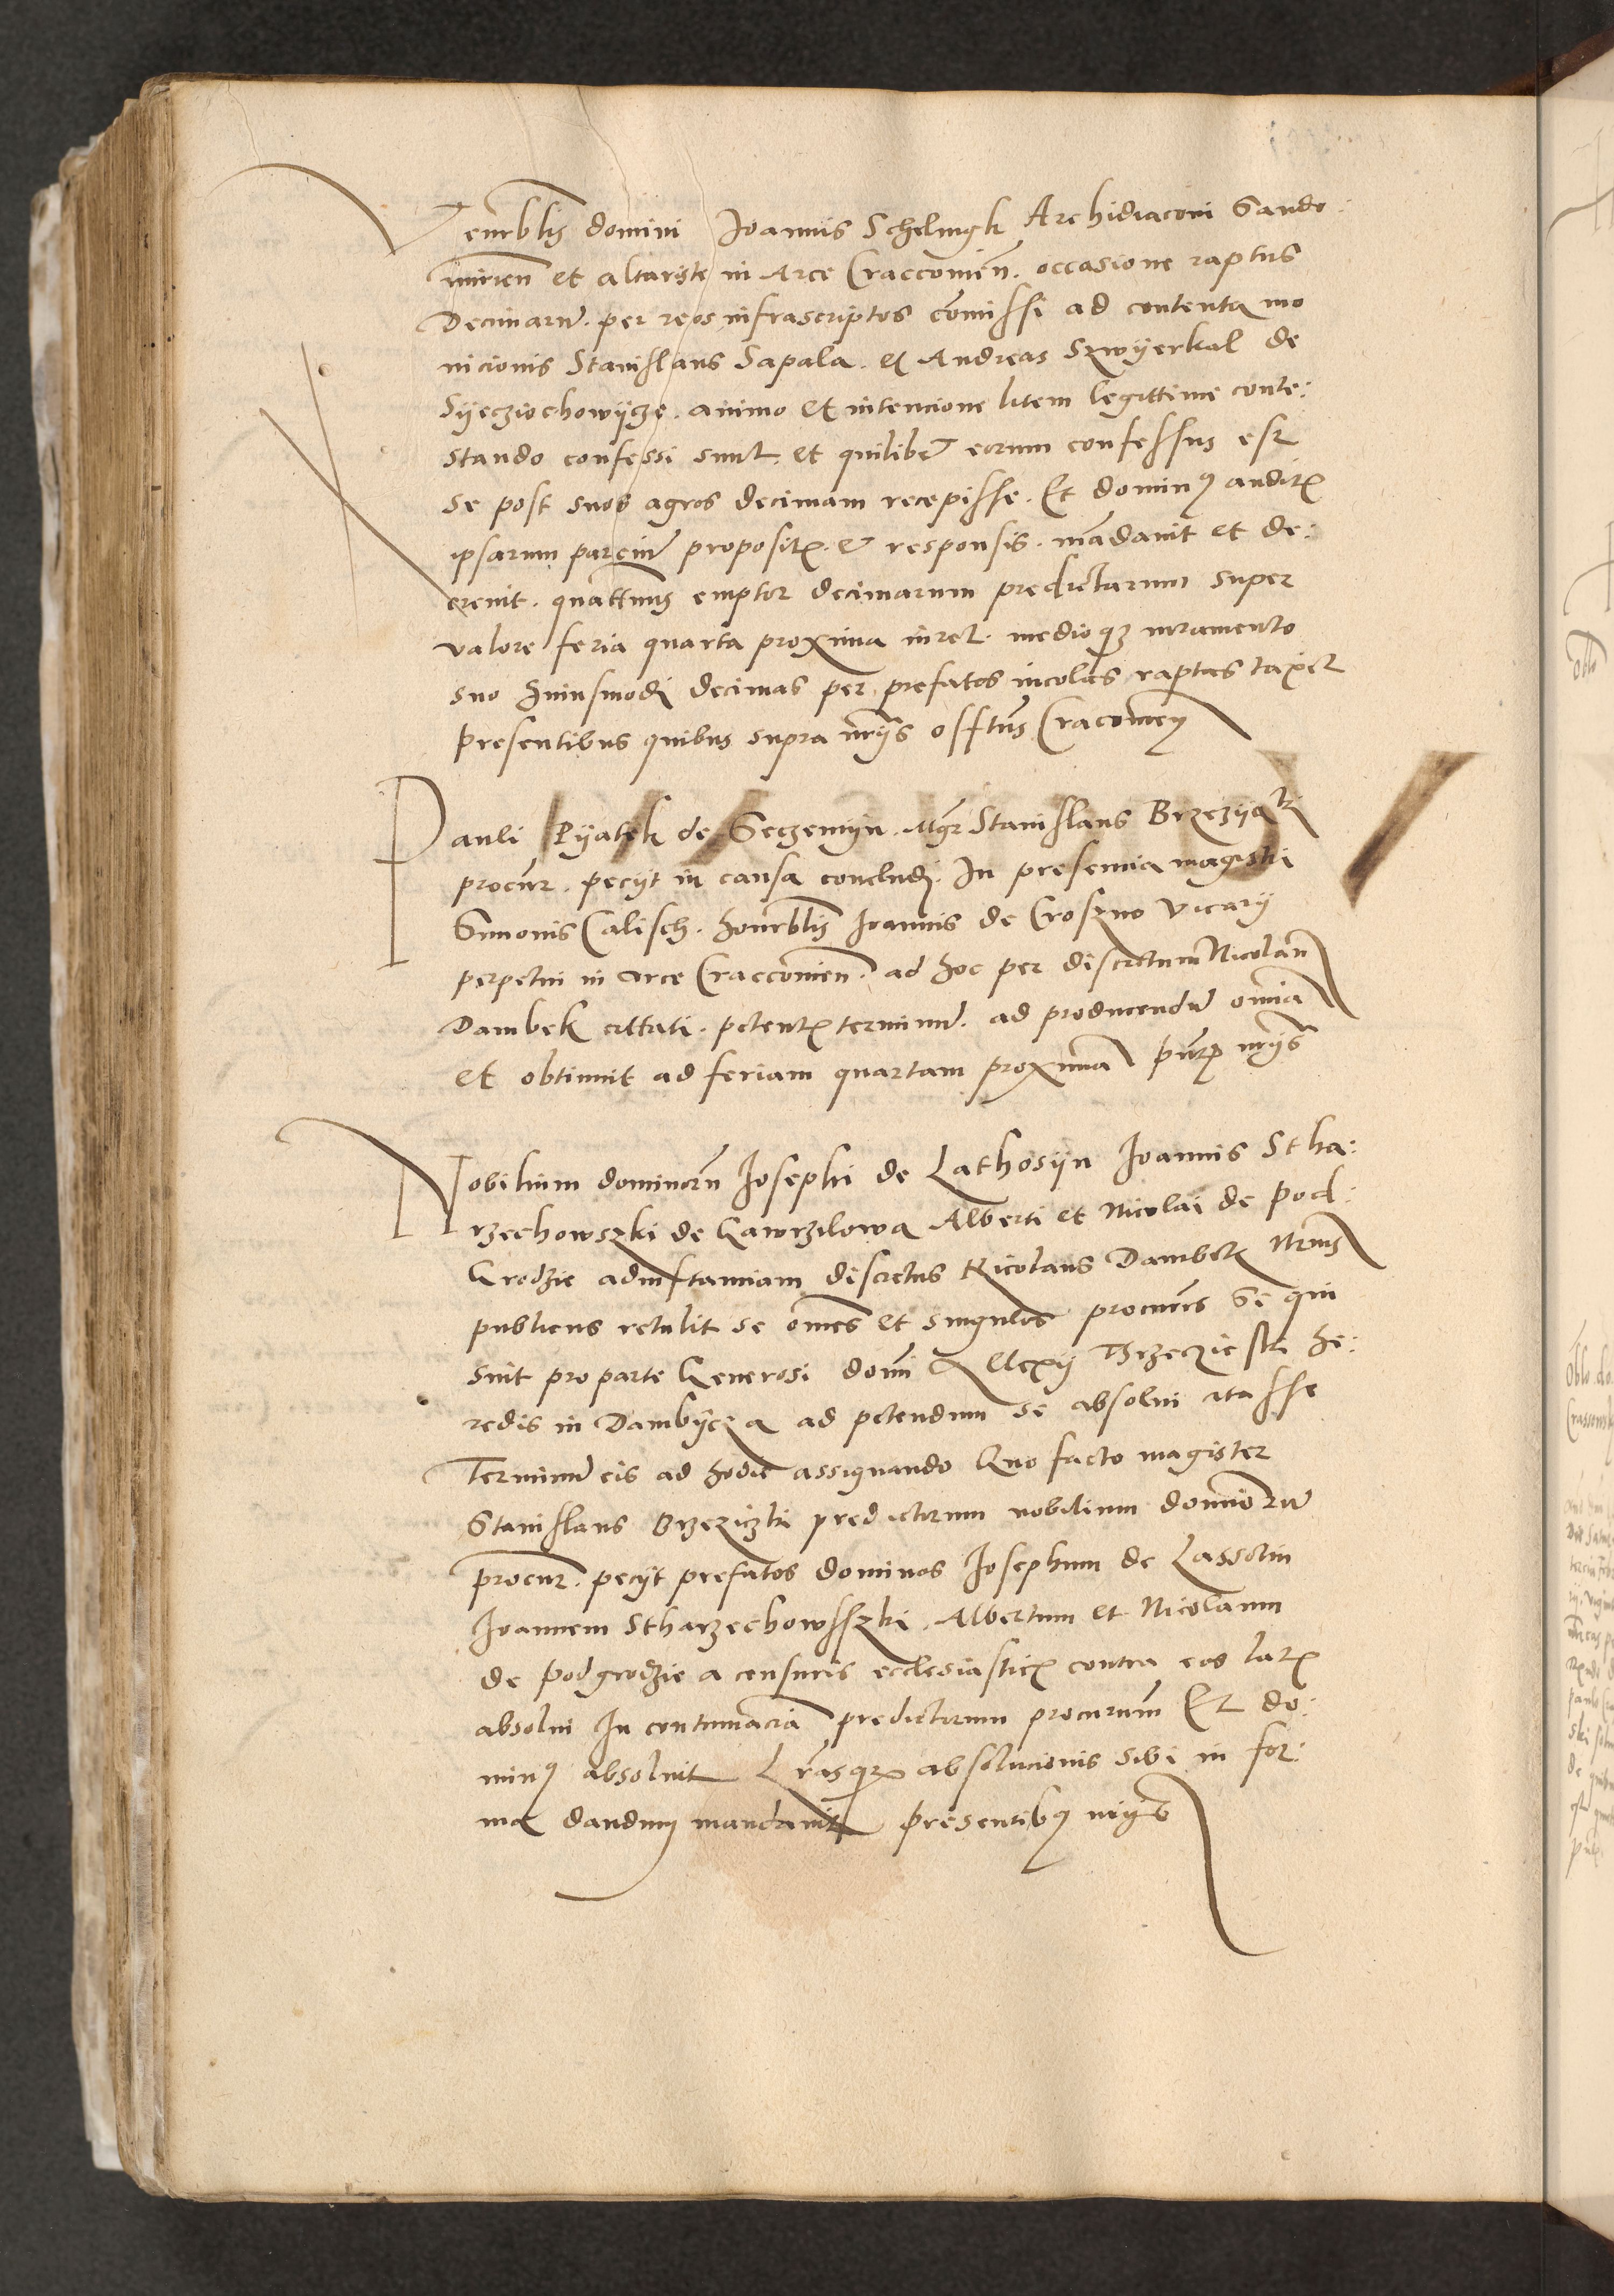 Venerblis domini Joannis Schelingk Archidiaconi Sando:
mirien et altariste in Arce Cracconien. occasione raptus
Decimarum. per reos infrascriptos comissi ad contenta mo
nicionis Stanislaus Sapala. et Andreas Szwyerkal de
Syecziechowycze. animo et intencione litem legittime conte:
stando confessi sunt. et quilibet eorum confessus est
se post suos agros decimam recepisse. Et dominus auditis
ipsarum parcium propositis et responsis. mandavit et de:
crevit. quattenus emptor decimarum predictarum super
valore feria quarta proxima iuret. medioque iuramento
suo huiusmodi decimas per prefatos incolas raptas taxet
presentibus quibus supra nrijs offtus Cracovien
Pauli Pyatek de Seczemyn. Mgr Stanislaus Brzezyczki
procur. pecyt in causa concludi. In presencia magistri
Simonis Calisch. honrblis Joannis de Croszno vicarij
perpetui in arce Cracconien. ad hoc per discretum Nicolaum
Dambek cittati. petentis terminum. ad producendum omnia
et obtinuit ad feriam quartam proximam pntibus nrijs
Nobilium dominorum Josephi de Lathosyn Joannis Stha:
rzechowszki de Gawrzilowa Alberti et Nicolai de Pod:
Grodzie ad instanciam discretus Nicolaus Dambek Nrius
publicus retulit se omnes et singulos procures Si qui
sint pro parte Generosi domini Alexij Trzeczieski he:
redis in Dambycza ad petendum se absolui citasse
Terminum eis ad hodie assignando Quo facto magister
Stanislaus Brzeziczki predictorum nobilium dominorum
procur. pecyt prefatos dominos Josephum de Lassotin
Joannem Stharzechowsszki. Albertum et Nicolaum
de podgrodzie a censuris ecclesiasticis contra eos latis
absolui In contumacia predictorum procurum Et do:
minus absoluit Lrasque absolucionis sibi in for:
ma dandum mandavit presentibus nrijs